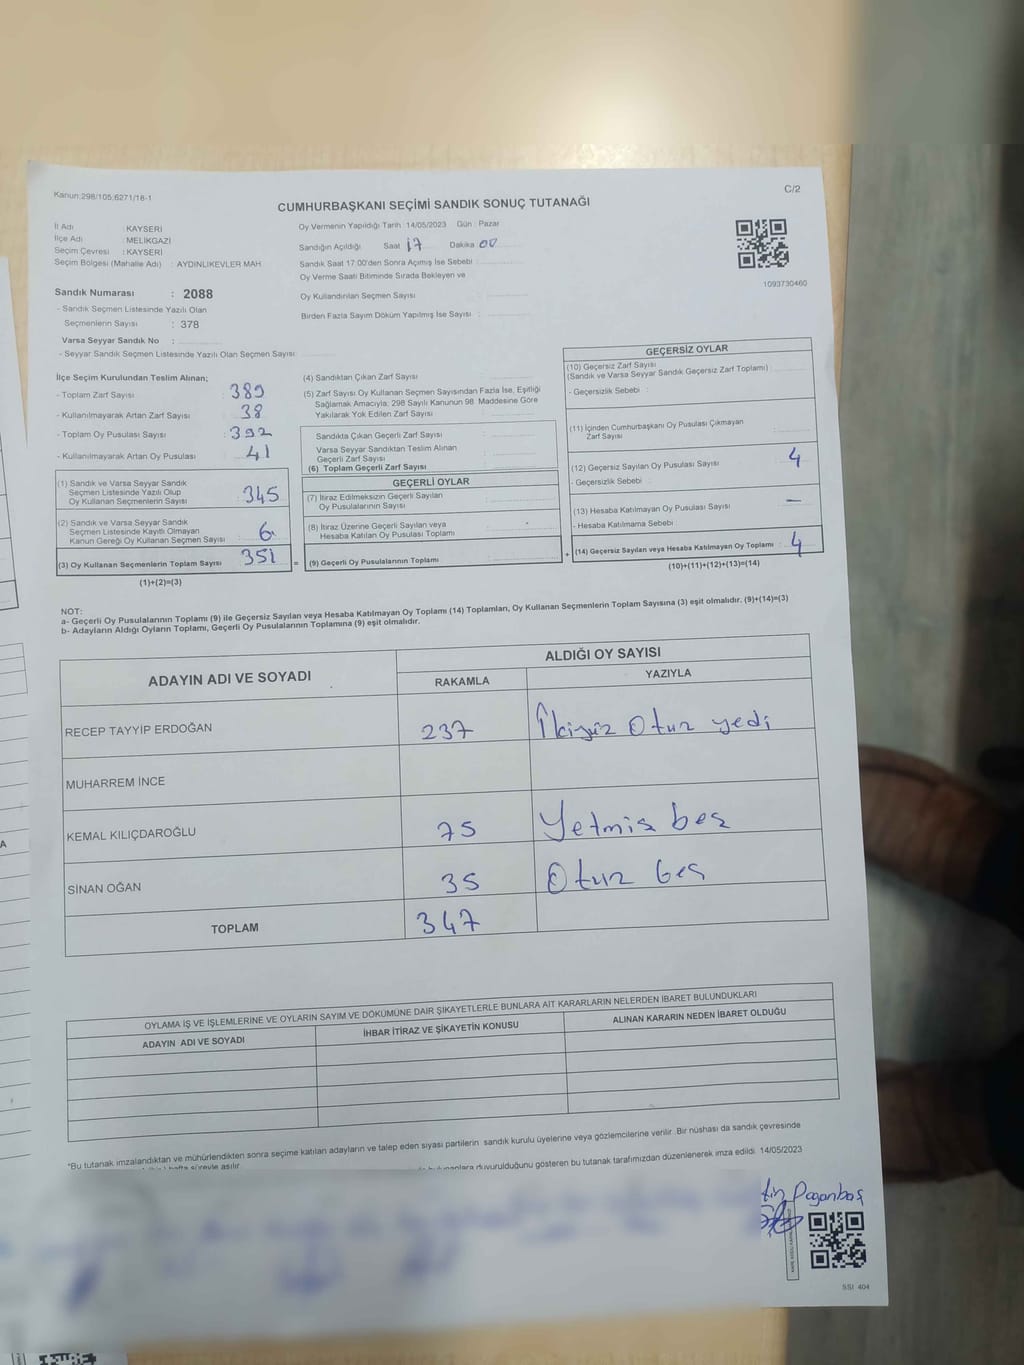 Kanun:298/105;6271/18-1
C/2
CUMHURBAŞKANI SEÇİMİ SANDIK SONUÇ TUTANAĞI
İl Adı : KAYSERİ
İlçe Adı : MELİKGAZİ
Seçim Çevresi : KAYSERİ
Seçim Bölgesi (Mahalle Adı) : AYDINLIKEVLER MAH
Sandık Numarası : 2088
- Sandık Seçmen Listesinde Yazılı Olan
Seçmenlerin Sayısı : 378
Varsa Seyyar Sandık No :
- Seyyar Sandık Seçmen Listesinde Yazılı Olan Seçmen Sayısı:
Oy Vermenin Yapıldığı Tarih : 14/05/2023 Gün : Pazar
Sandığın Açıldığı Saat 17 Dakika 00
Sandık Saat 17:00'den Sonra Açılmış İse Sebebi :
Oy Verme Saati Bitiminde Sırada Bekleyen ve
Oy Kullandırılan Seçmen Sayısı :
Birden Fazla Sayım Döküm Yapılmış İse Sayısı :
1093730460
İlçe Seçim Kurulundan Teslim Alınan;
- Toplam Zarf Sayısı : 389
- Kullanılmayarak Artan Zarf Sayısı : 38
- Toplam Oy Pusulası Sayısı : 392
- Kullanılmayarak Artan Oy Pusulası : 41
(1) Sandık ve Varsa Seyyar Sandık
Seçmen Listesinde Yazılı Olup
Oy Kullanan Seçmenlerin Sayısı : 345
(2) Sandık ve Varsa Seyyar Sandık
Seçmen Listesinde Kayıtlı Olmayan
Kanun Gereği Oy Kullanan Seçmen Sayısı : 6
(3) Oy Kullanan Seçmenlerin Toplam Sayısı : 351
(1)+(2)=(3)
(4) Sandıktan Çıkan Zarf Sayısı :
(5) Zarf Sayısı Oy Kullanan Seçmen Sayısından Fazla İse, Eşitliği
Sağlamak Amacıyla; 298 Sayılı Kanunun 98. Maddesine Göre
Yakılarak Yok Edilen Zarf Sayısı :
Sandıkta Çıkan Geçerli Zarf Sayısı :
Varsa Seyyar Sandıktan Teslim Alınan
Geçerli Zarf Sayısı :
(6) Toplam Geçerli Zarf Sayısı :
GEÇERLİ OYLAR
(7) İtiraz Edilmeksizin Geçerli Sayılan
Oy Pusulalarının Sayısı :
(8) İtiraz Üzerine Geçerli Sayılan veya
Hesaba Katılan Oy Pusulası Toplamı :
= (9) Geçerli Oy Pusulalarının Toplamı :
GEÇERSİZ OYLAR
(10) Geçersiz Zarf Sayısı
(Sandık ve Varsa Seyyar Sandık Geçersiz Zarf Toplamı) :
- Geçersizlik Sebebi :
(11) İçinden Cumhurbaşkanı Oy Pusulası Çıkmayan
Zarf Sayısı :
(12) Geçersiz Sayılan Oy Pusulası Sayısı : 4
- Geçersizlik Sebebi :
(13) Hesaba Katılmayan Oy Pusulası Sayısı : —
- Hesaba Katılmama Sebebi :
+ (14) Geçersiz Sayılan veya Hesaba Katılmayan Oy Toplamı : 4
(10)+(11)+(12)+(13)=(14)
NOT:
a- Geçerli Oy Pusulalarının Toplamı (9) ile Geçersiz Sayılan veya Hesaba Katılmayan Oy Toplamı (14) Toplamları, Oy Kullanan Seçmenlerin Toplam Sayısına (3) eşit olmalıdır. (9)+(14)=(3)
b- Adayların Aldığı Oyların Toplamı, Geçerli Oy Pusulalarının Toplamına (9) eşit olmalıdır.
ADAYIN ADI VE SOYADI
ALDIĞI OY SAYISI
RAKAMLA YAZIYLA
RECEP TAYYİP ERDOĞAN 237 İkiyüz Otuz yedi
MUHARREM İNCE
KEMAL KILIÇDAROĞLU 75 Yetmiş beş
SİNAN OĞAN 35 Otuz beş
TOPLAM 347
OYLAMA İŞ VE İŞLEMLERİNE VE OYLARIN SAYIM VE DÖKÜMÜNE DAİR ŞİKAYETLERLE BUNLARA AİT KARARLARIN NELERDEN İBARET BULUNDUKLARI
ADAYIN ADI VE SOYADI
İHBAR İTİRAZ VE ŞİKAYETİN KONUSU
ALINAN KARARIN NEDEN İBARET OLDUĞU
*Bu tutanak imzalandıktan ve mühürlendikten sonra seçime katılan adayların ve talep eden siyasi partilerin sandık kurulu üyelerine veya gözlemcilerine verilir. Bir nüshası da sandık çevresinde
hafta süreyle asılır.
duyurulduğunu gösteren bu tutanak tarafımızdan düzenlenerek imza edildi. 14/05/2023
SSI 404